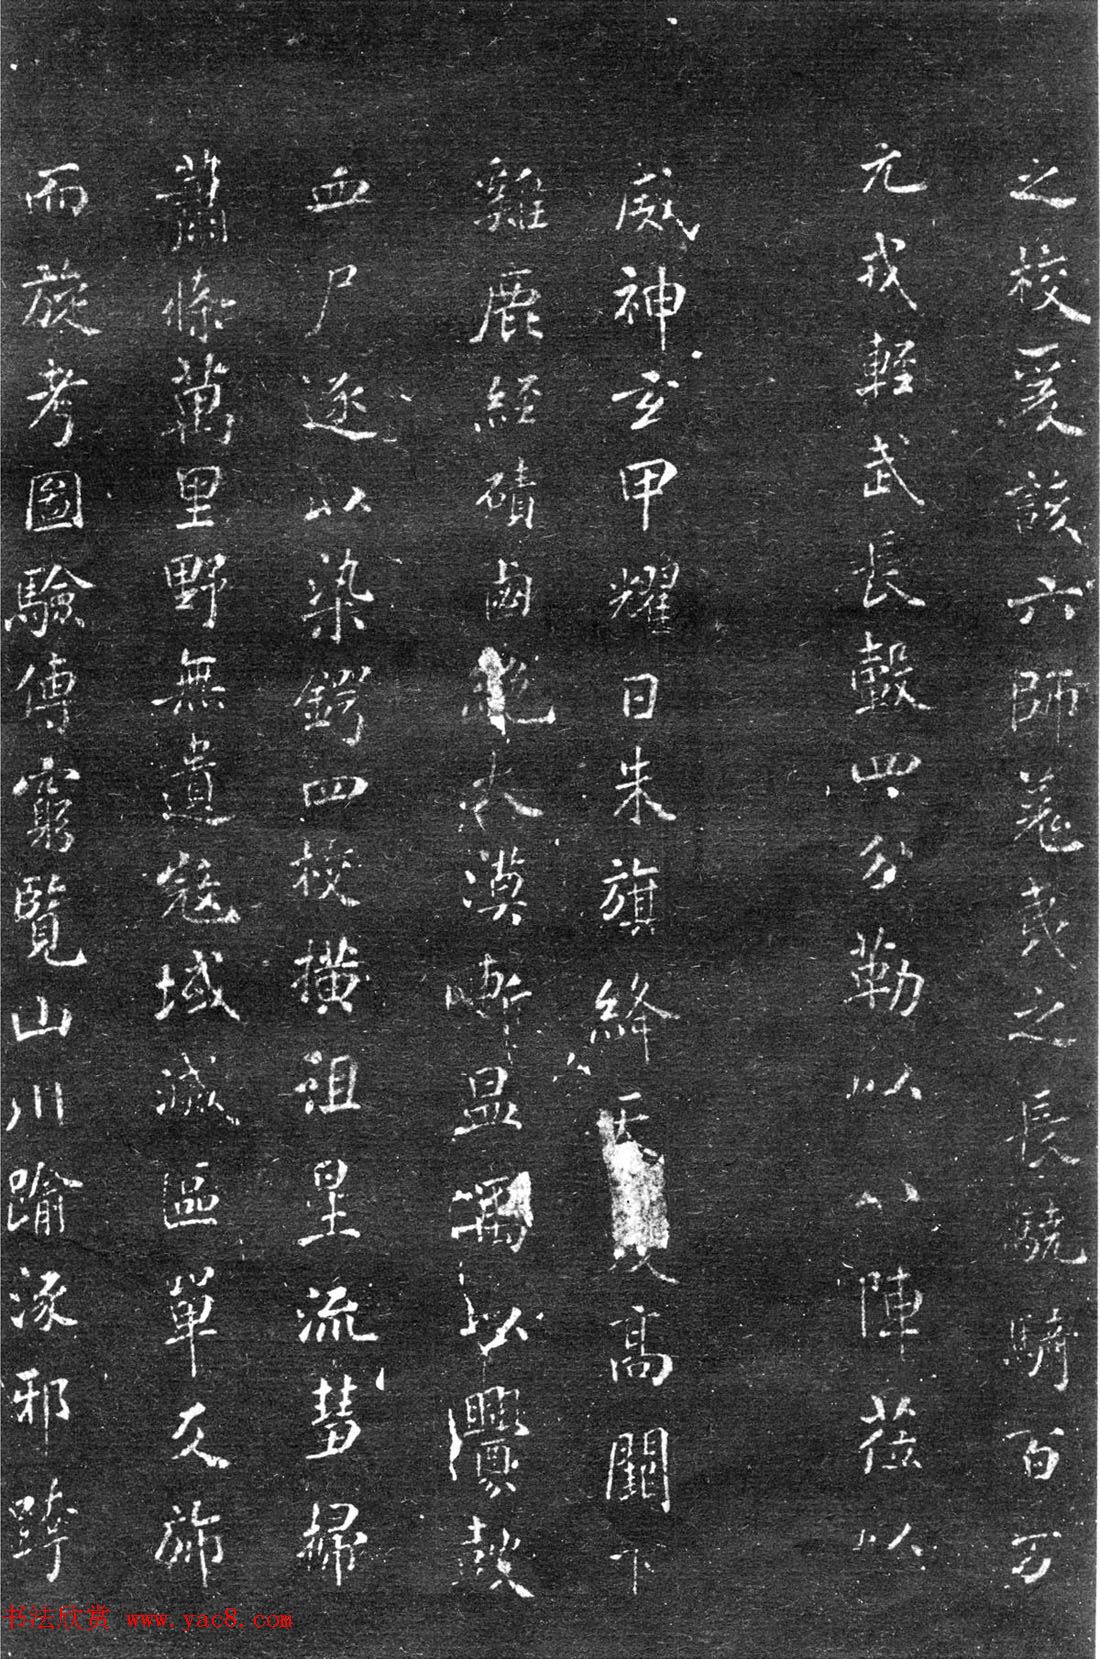 之校爰該六師蒐羌之長驍騎百万
元戎輕武長轂四分勒以八陣莅以
威神玄甲耀日朱旗絳天 高闕下
雞鹿經磧鹵絶大漠斬温禺以釁鼓
血尸逐以染鍔四校橫徂星流彗掃
蕭條萬里野無遺寇域滅區單反旆
而旋考圖驗傳窮覽山川踰涿邪跨
书法欣赏 www.yac8.com